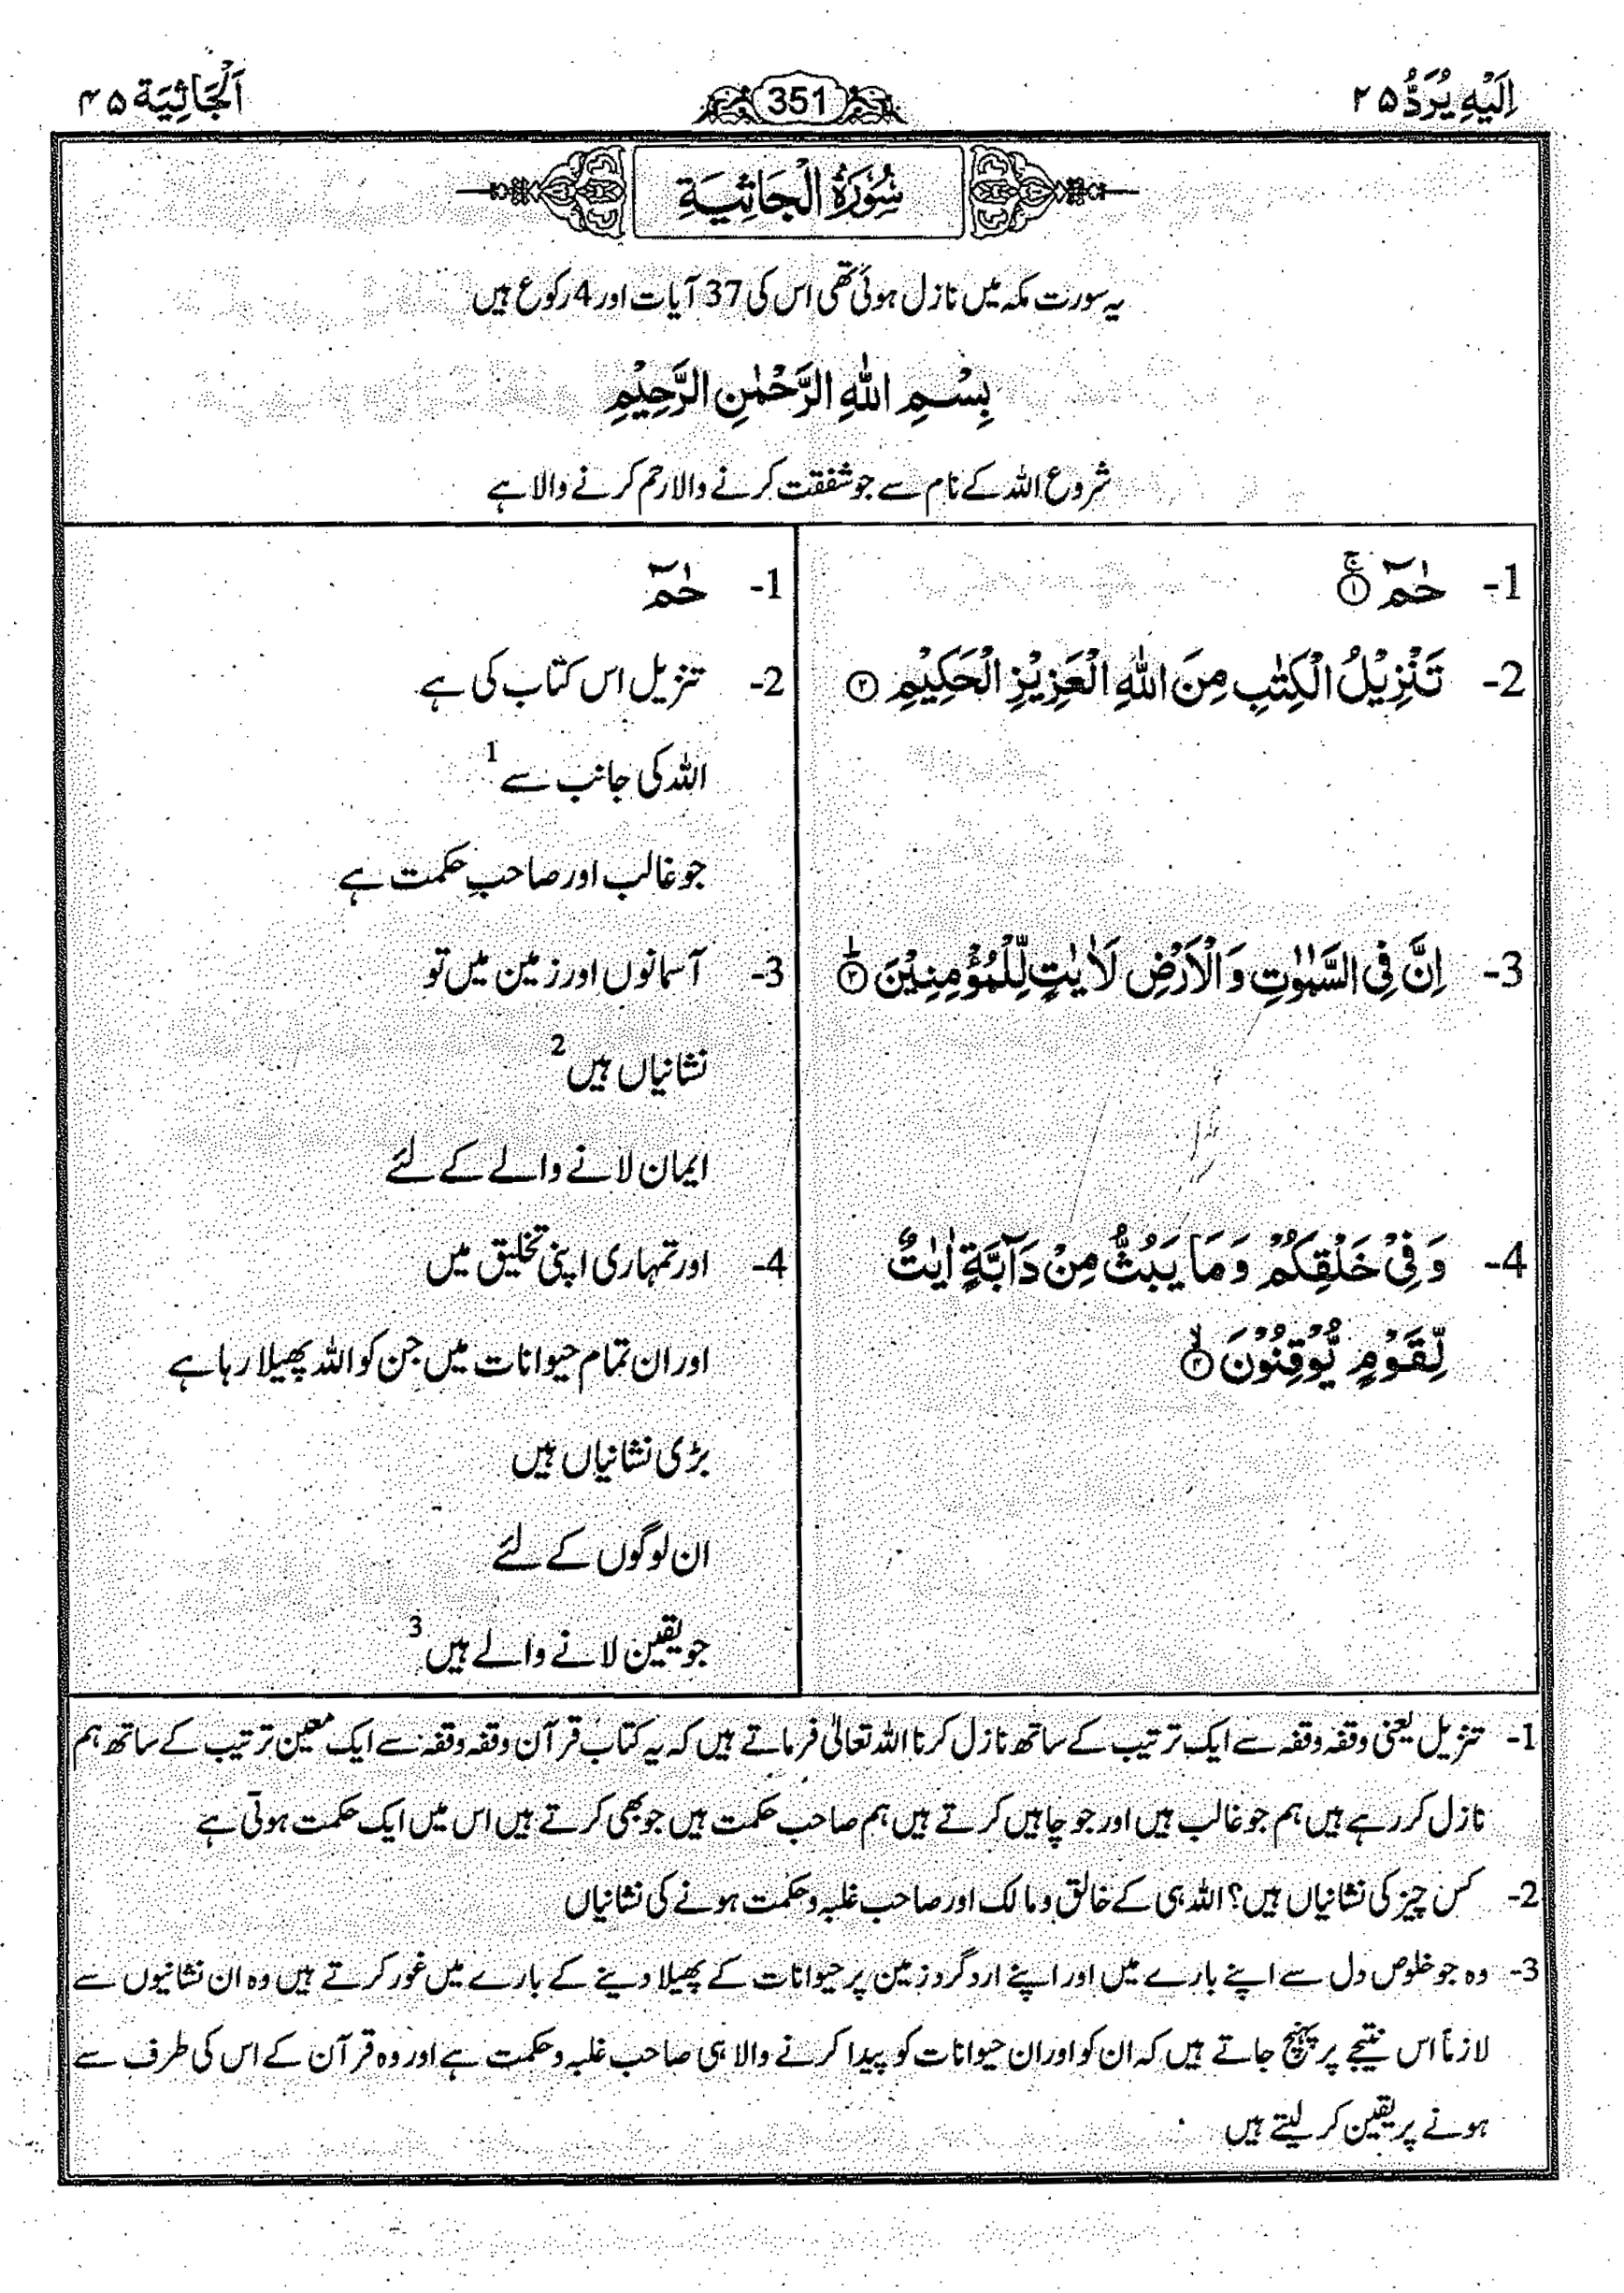 اِلَيْهِ يُرَدُّ ۲۵
351
اَلْجَاثِيَة ۴۵
سُوْرَةُ الْجَاثِيَةِ
یہ سورت مکہ میں نازل ہوئی تھی اس کی 37 آیات اور 4 رکوع ہیں
بِسْمِ اللّٰهِ الرَّحْمٰنِ الرَّحِيْمِ
شروع اللہ کے نام سے جو شفقت کرنے والا رحم کرنے والا ہے
1- حٰمٓ ۚ﴿۱﴾
2- تَنْزِيْلُ الْكِتٰبِ مِنَ اللّٰهِ الْعَزِيْزِ الْحَكِيْمِ ﴿۲﴾
3- اِنَّ فِى السَّمٰوٰتِ وَالْاَرْضِ لَاٰيٰتٍ لِّلْمُؤْمِنِيْنَ ؕ﴿۳﴾
4- وَفِىْ خَلْقِكُمْ وَمَا يَبُثُّ مِنْ دَآبَّةٍ اٰيٰتٌ
لِّقَوْمٍ يُّوْقِنُوْنَ ۙ﴿۴﴾
1- حٰمٓ
2- تنزیل اس کتاب کی ہے
اللہ کی جانب سے 1
جو غالب اور صاحبِ حکمت ہے
3- آسمانوں اور زمین میں تو
نشانیاں ہیں 2
ایمان لانے والے کے لئے
4- اور تمہاری اپنی تخلیق میں
اور ان تمام حیوانات میں جن کو اللہ پھیلا رہا ہے
بڑی نشانیاں ہیں
ان لوگوں کے لئے
جو یقین لانے والے ہیں 3
1- تنزیل یعنی وقفہ وقفہ سے ایک ترتیب کے ساتھ نازل کرنا اللہ تعالیٰ فرماتے ہیں کہ یہ کتاب قرآن وقفہ وقفہ سے ایک معین ترتیب کے ساتھ ہم
نازل کر رہے ہیں ہم جو غالب ہیں اور جو چاہیں کرتے ہیں ہم صاحب حکمت ہیں جو بھی کرتے ہیں اس میں ایک حکمت ہوتی ہے
2- کس چیز کی نشانیاں ہیں؟ اللہ ہی کے خالق و مالک اور صاحب غلبہ و حکمت ہونے کی نشانیاں
3- وہ جو خلوص دل سے اپنے بارے میں اور اپنے ارد گرد زمین پر حیوانات کے پھیلا دینے کے بارے میں غور کرتے ہیں وہ ان نشانیوں سے
لازماً اس نتیجے پر پہنچ جاتے ہیں کہ ان کو اور ان حیوانات کو پیدا کرنے والا ہی صاحب غلبہ و حکمت ہے اور وہ قرآن کے اس کی طرف سے
ہونے پر یقین کر لیتے ہیں